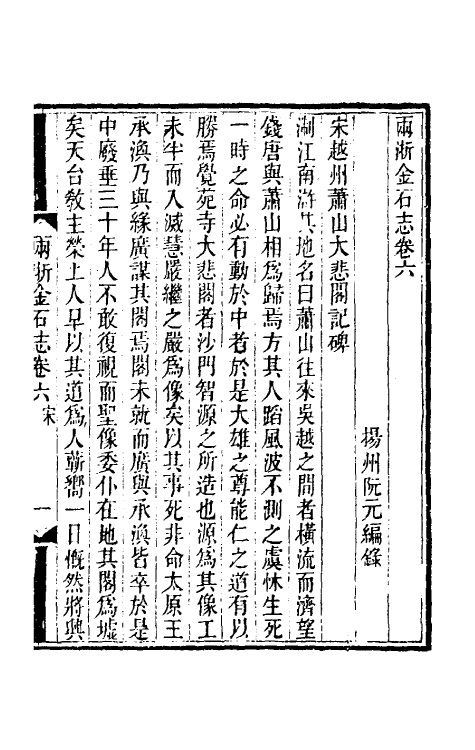 兩浙金石志卷六
揚州阮元編錄
宋越州蕭山大悲閣記碑
淛江南滸其地名曰蕭山往來吳越之間者橫流而濟望
錢唐與蕭山相爲歸焉方其人蹈風波不測之虞怵生死
一時之命必有動於中者於是大雄之尊能仁之道有以
勝焉覺苑寺大悲閣者沙門智源之所造也源爲其像工
未半而入滅慧嚴繼之嚴爲像矣以其事死非命太原王
承渙乃與緣廣謀其閣焉閣未就而廣與承渙皆卒於是
中廢垂三十年人不敢復視而聖像委仆在地其閣爲墟
矣天台敎主榮上人早以其道爲人蘄嚮一日慨然將興
兩浙金石志卷六 宋 一